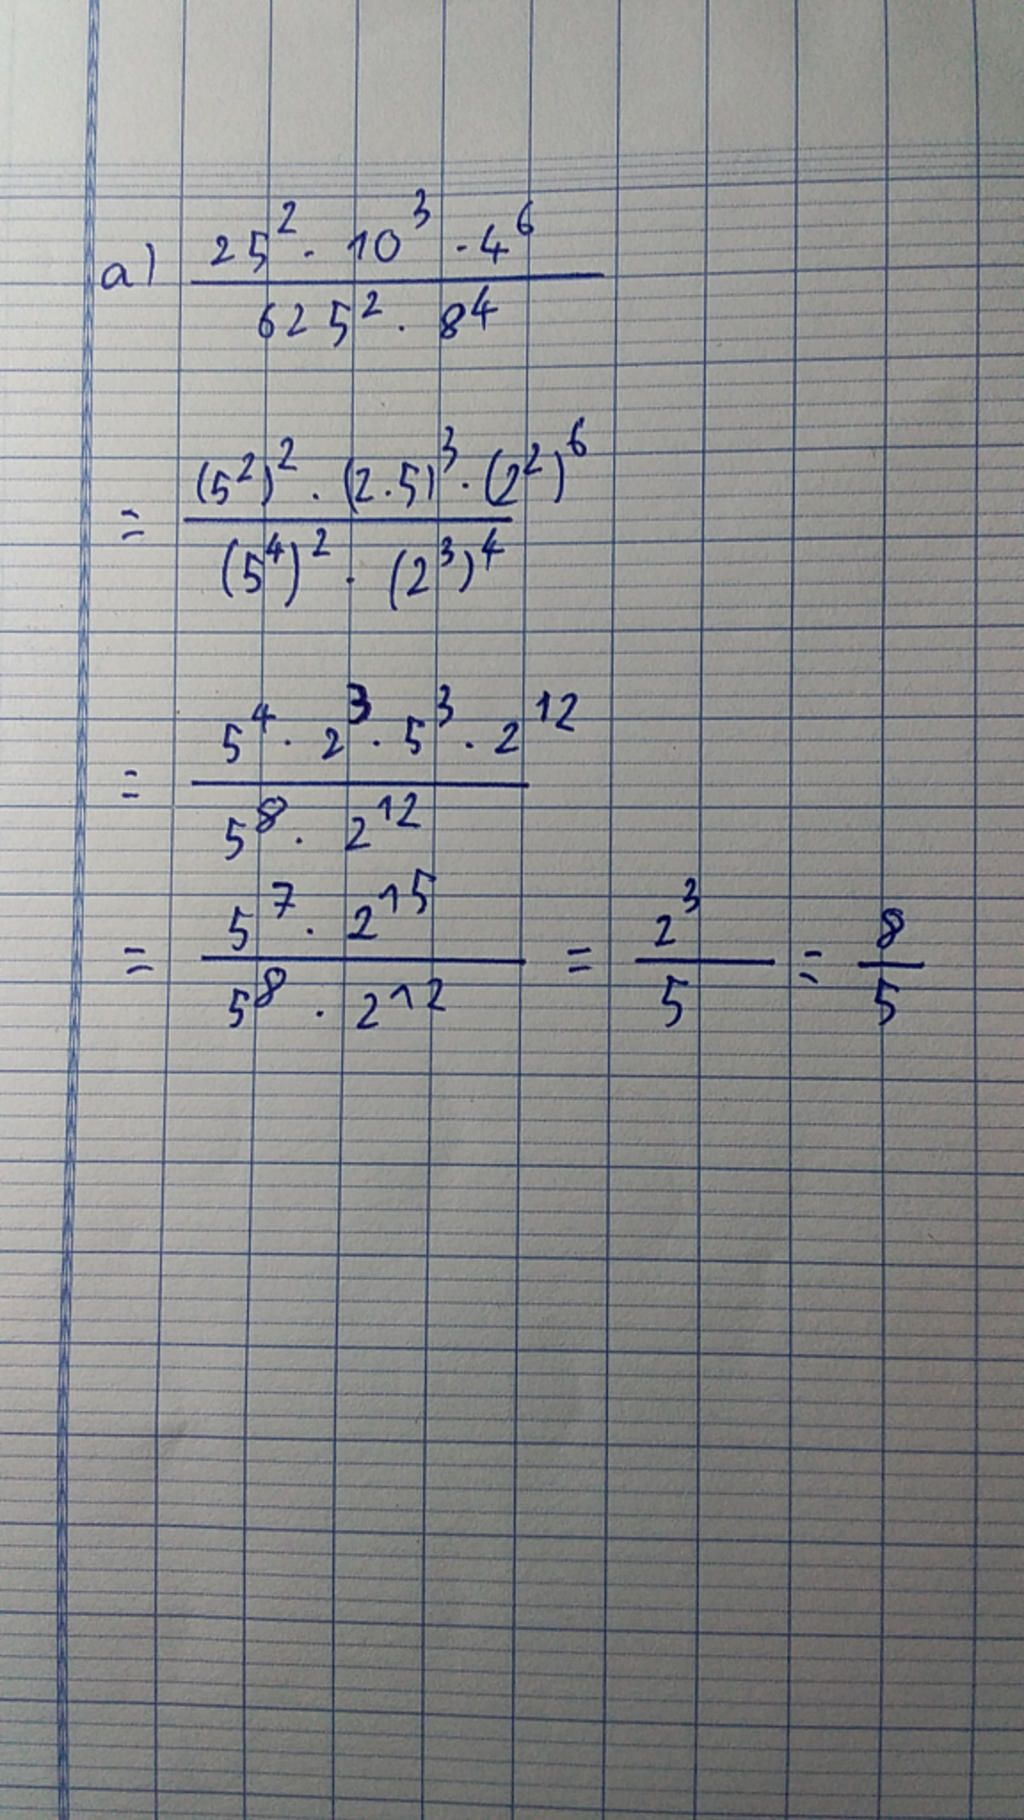 a) 25² · 10³ · 4⁶
625² · 8⁴
= (5²)² · (2·5)³ · (2²)⁶
(5⁴)² · (2³)⁴
= 5⁴ · 2³ · 5³ · 2¹²
5⁸ · 2¹²
= 5⁷ · 2¹⁵ / 5⁸ · 2¹² = 2³ / 5 = 8 / 5